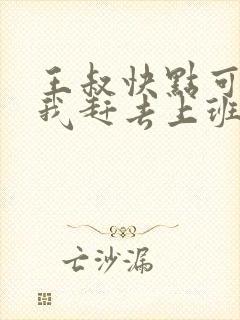 王叔快點可
我赶去上班
亡沙漏